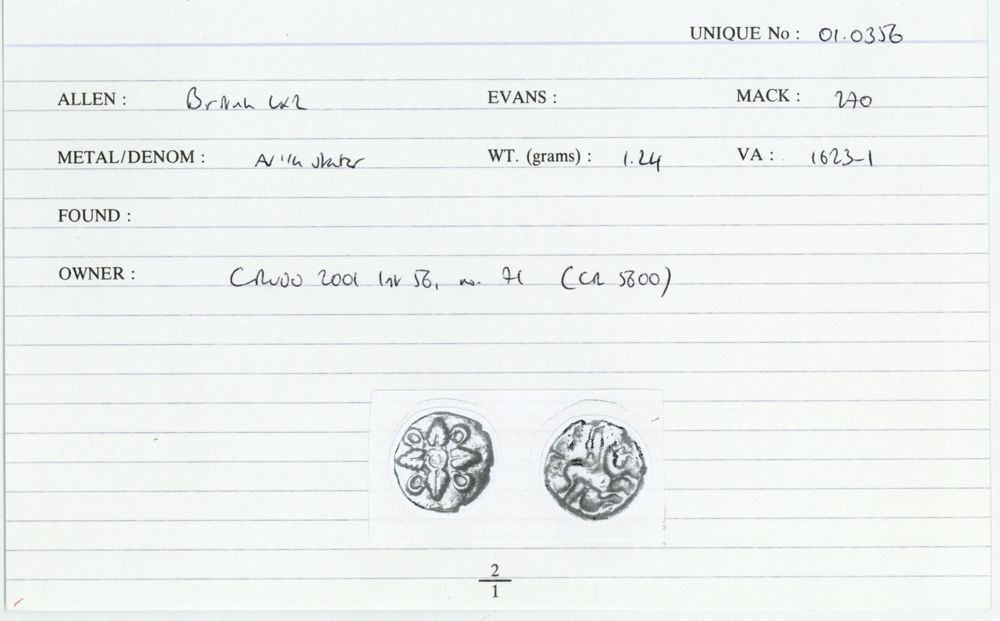 UNIQUE No : 01.0356
ALLEN : British EVANS : MACK : 270
METAL/DENOM : stater WT. (grams) : 1.24 VA : 1623-1
FOUND :
OWNER : 2001 56, no. 71 (CR 5600)
2
1